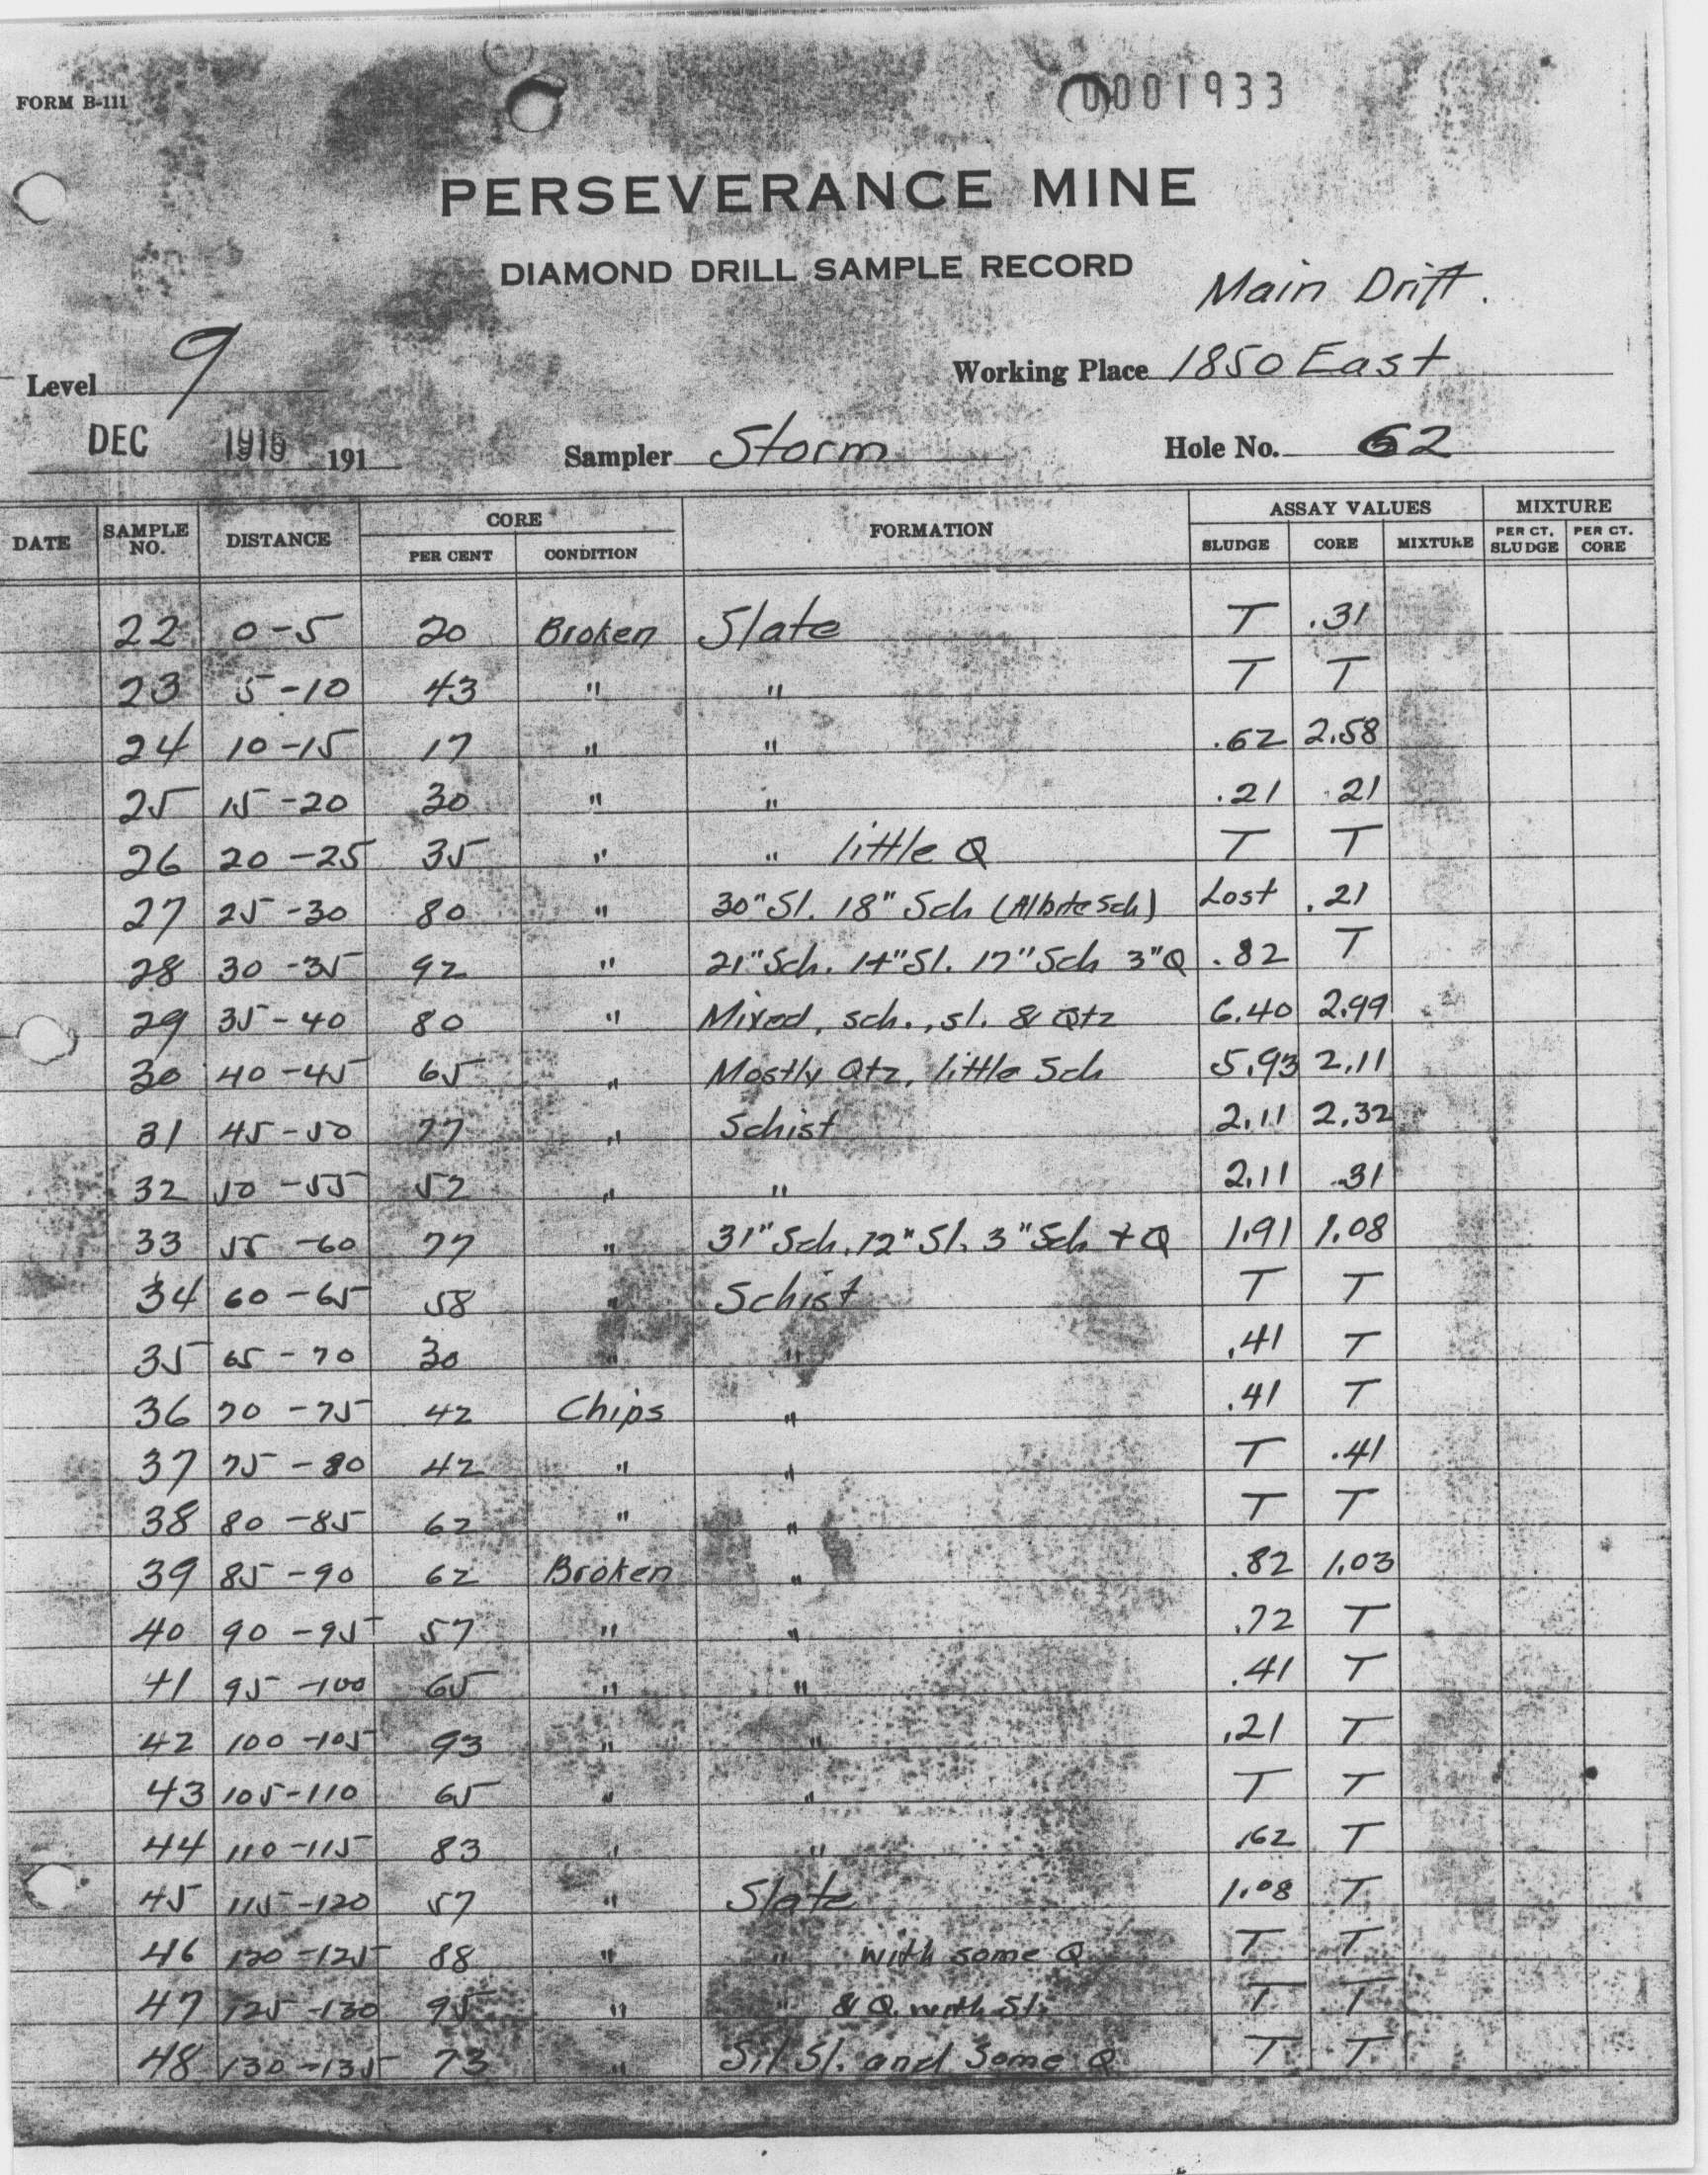 FORM B-111
0001933
PERSEVERANCE MINE
DIAMOND DRILL SAMPLE RECORD
Main Drift.
Level 9 Working Place 1850 East
DEC 1919 191 Sampler Storm Hole No. 62
DATE SAMPLE NO. DISTANCE CORE PER CENT CONDITION FORMATION ASSAY VALUES SLUDGE CORE MIXTURE MIXTURE PER CT. SLUDGE PER CT. CORE
22 0-5 20 Broken Slate T .31
23 5-10 43 " " T T
24 10-15 17 " " .62 2.58
25 15-20 30 " " .21 .21
26 20-25 35 " " little Q T T
27 25-30 80 " 30" Sl. 18" Sch (Albite Sch) Lost .21
28 30-35 92 " 21" Sch. 14" Sl. 17" Sch 3" Q .82 T
29 35-40 80 " Mixed, sch., sl. & Qtz 6.40 2.99
30 40-45 65 " Mostly Qtz, little Sch 5.93 2.11
31 45-50 77 " Schist 2.11 2.32
32 50-55 52 " " 2.11 .31
33 55-60 77 " 31" Sch. 12" Sl. 3" Sch + Q 1.91 1.08
34 60-65 58 " Schist T T
35 65-70 30 " " .41 T
36 70-75 42 Chips " .41 T
37 75-80 42 " " T .41
38 80-85 62 " " T T
39 85-90 62 Broken " .82 1.03
40 90-95 57 " " .72 T
41 95-100 65 " " .41 T
42 100-105 93 " " .21 T
43 105-110 65 " " T T
44 110-115 83 " " .62 T
45 115-120 57 " Slate 1.08 T
46 120-125 88 " " with some Q T T
47 125-130 95 " " & Q. with Sl. T T
48 130-135 73 " Sil Sl. and Some Q T T